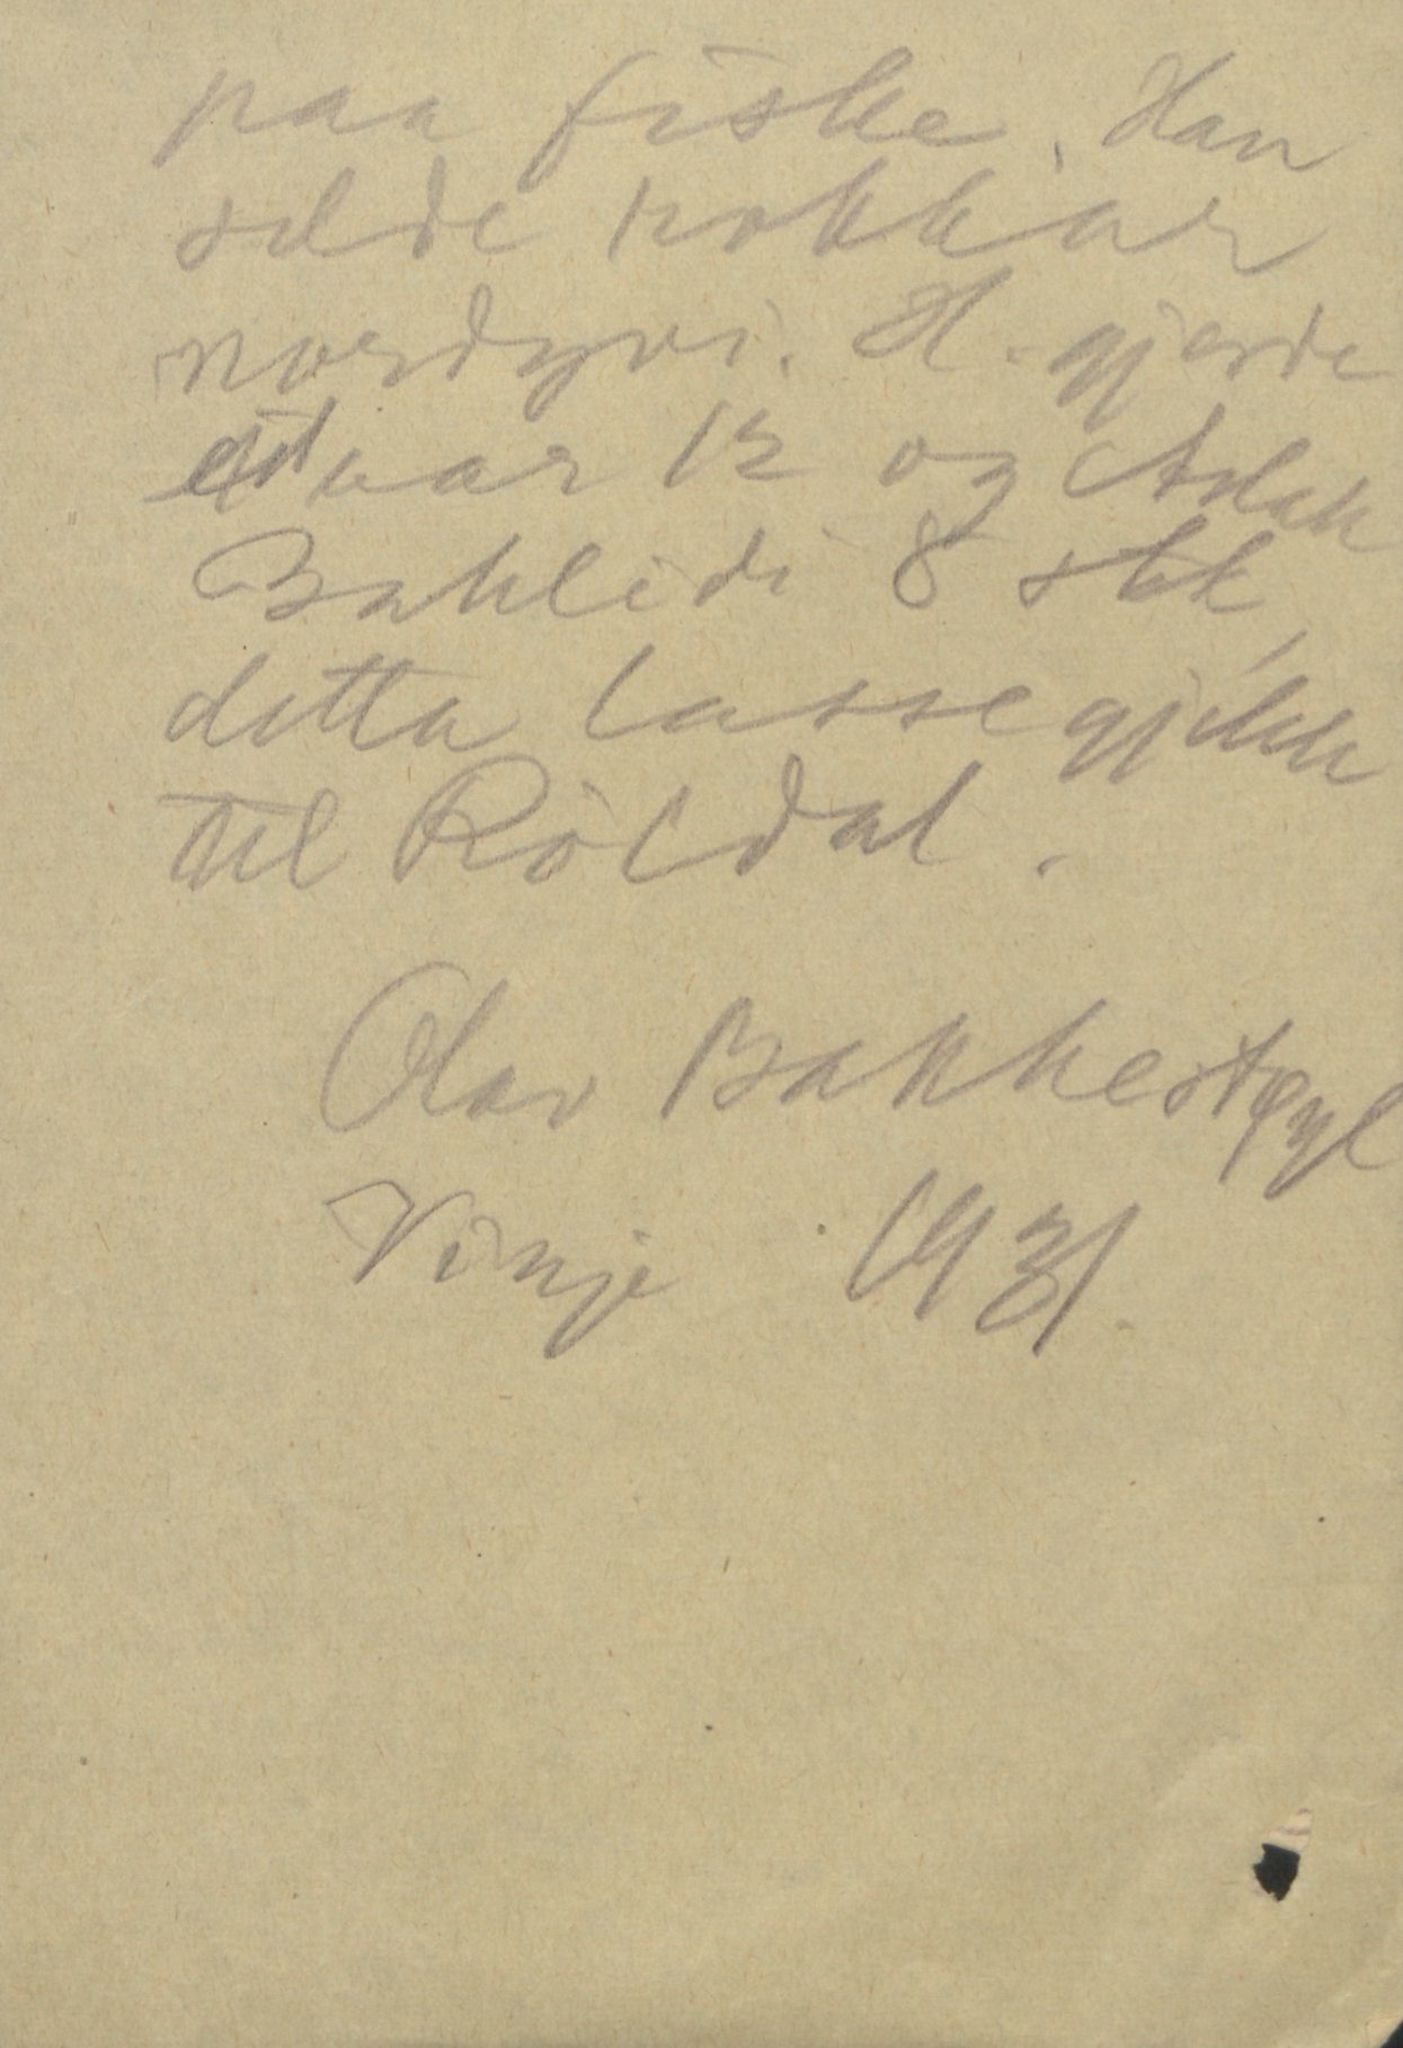 paa fiske. Han
selde rokkar
nordyvi. H. gjerde
eit aar 12 og Aslak
Baklidi 8 stk,
detta lasse gjekk
til Röldal.
Olav Bakkestøyl
Vinje 1931.